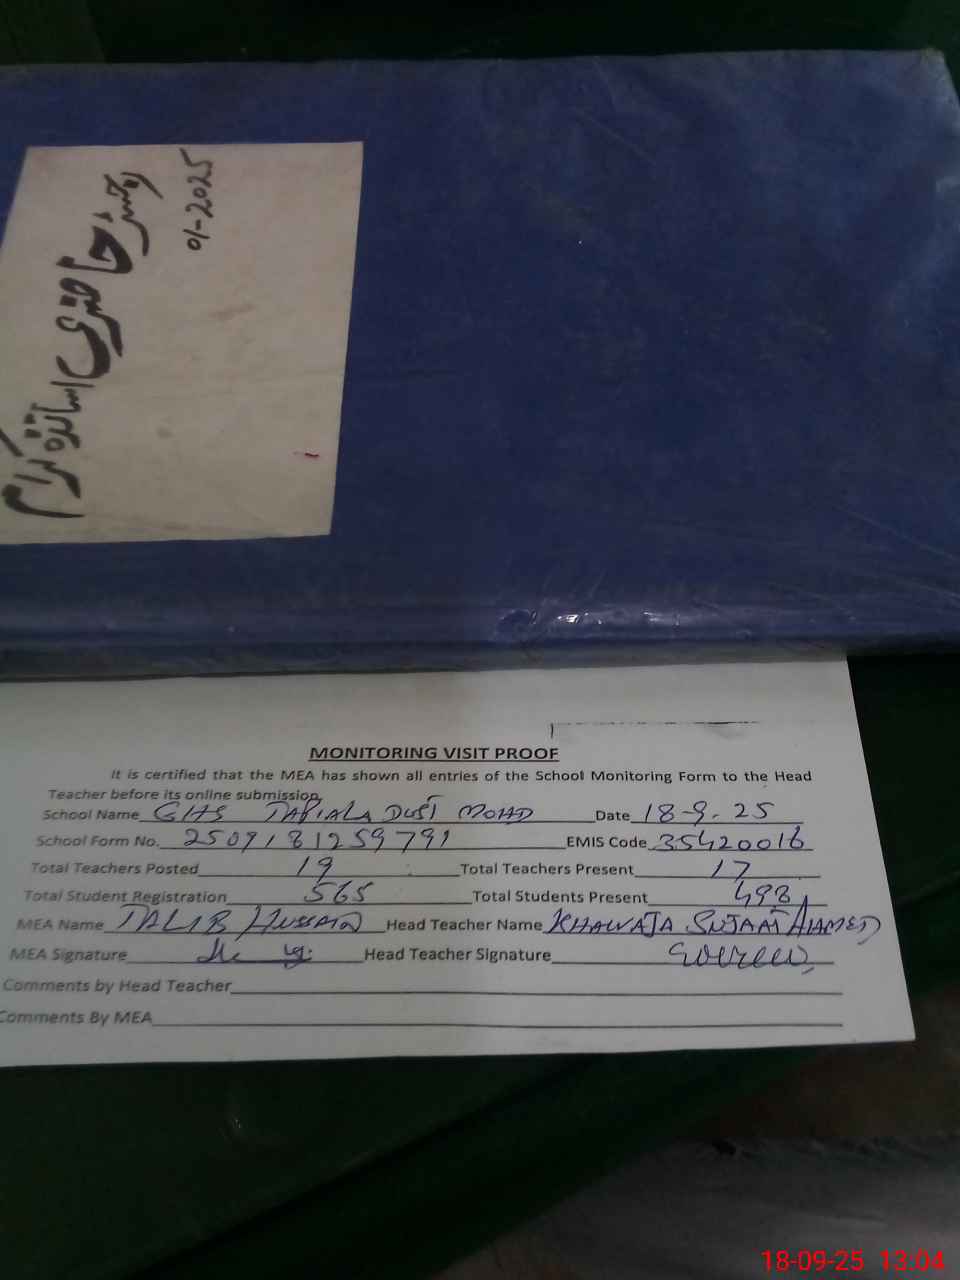 رجسٹر حاضری اساتذہ کرام
01-2025
MONITORING VISIT PROOF
It is certified that the MEA has shown all entries of the School Monitoring Form to the Head
Teacher before its online submission.
School Name GHS TAPIALA DUST MOHD Date 18-9-25
School Form No. 2509181259791 EMIS Code 35420016
Total Teachers Posted 19 Total Teachers Present 17
Total Student Registration 565 Total Students Present 493
MEA Name TALIB HUSSAIN Head Teacher Name KHAWAJA SUJAAT AHMED
MEA Signature Head Teacher Signature
Comments by Head Teacher
Comments By MEA
18-09-25 13:04